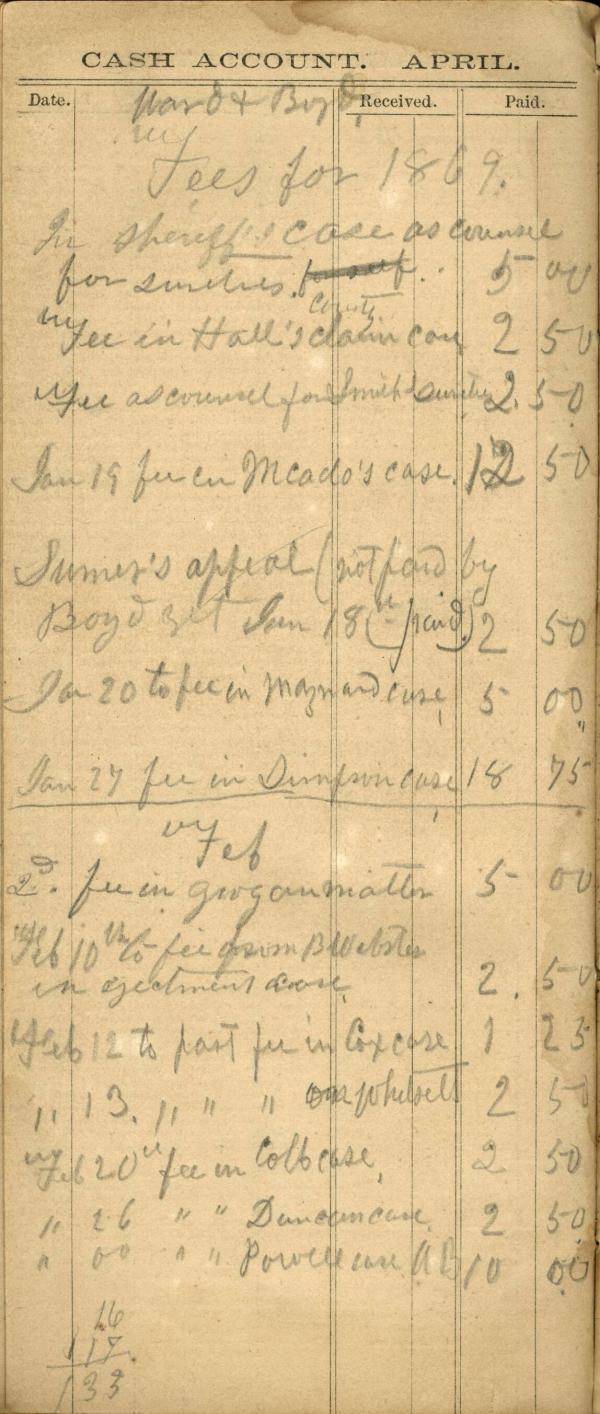 CASH ACCOUNT. APRIL.
Date. Ward & Boyd, Received. Paid.
Fees for 1869.
In sheriff's case as counsel
for sureties. 5 00
county
Fee in Hall's claim case 2 50
Fee as counsel for Smith's sureties 2.50
Jan 19 fee in Mcado's case. 12 50
Sumer's appeal (not paid by
Boyd yet Jan 18 (paid.) 2 50
Jan 20 to fee in Maynard case, 5 00
Jan 27 fee in Simpson case, 18 75
Feb
2d. fee in grogan matter 5 00
Feb 10th to fee from B Webster
in ejectment case, 2. 50
Feb 12 to part fee in Cox case 1 25
" 13. " " " 2 50
Feb 20 fee in Cobb case, 2 50
" 26 " " Duncan case, 2 50
" 00 " " Powell case 10 00
16
117
133